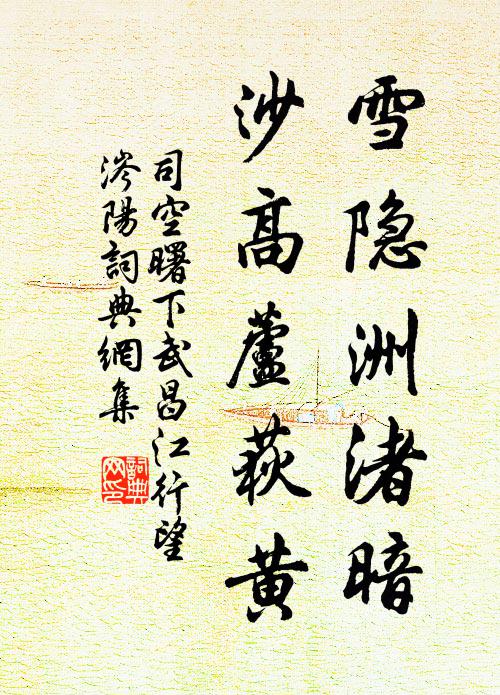 雪隐洲渚暗
沙高蘆荻黄
司空曙下武昌江行望
涔陽詞典網集
詞典
网印